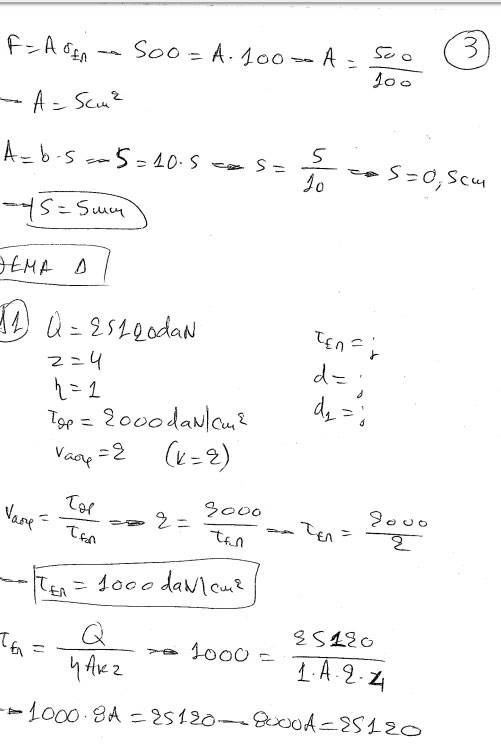 3
F = A σεπ → 500 = A · 100 → A = 500/100
→ A = 5cm²
A = b · s → 5 = 10 · s → s = 5/10 → s = 0,5cm
→ s = 5mm
ΘΕΜΑ Δ
Δ1 Q = 25120daN τεπ = ;
z = 4 d = ;
η = 1 d1 = ;
τθρ = 2000daN/cm²
νασφ = 2 (κ = 2)
νασφ = τθρ/τεπ → 2 = 2000/τεπ → τεπ = 2000/2
→ τεπ = 1000daN/cm²
τεπ = Q/ηAκz → 1000 = 25120/1·A·2·4
→ 1000·8A = 25120 → 8000A = 25120